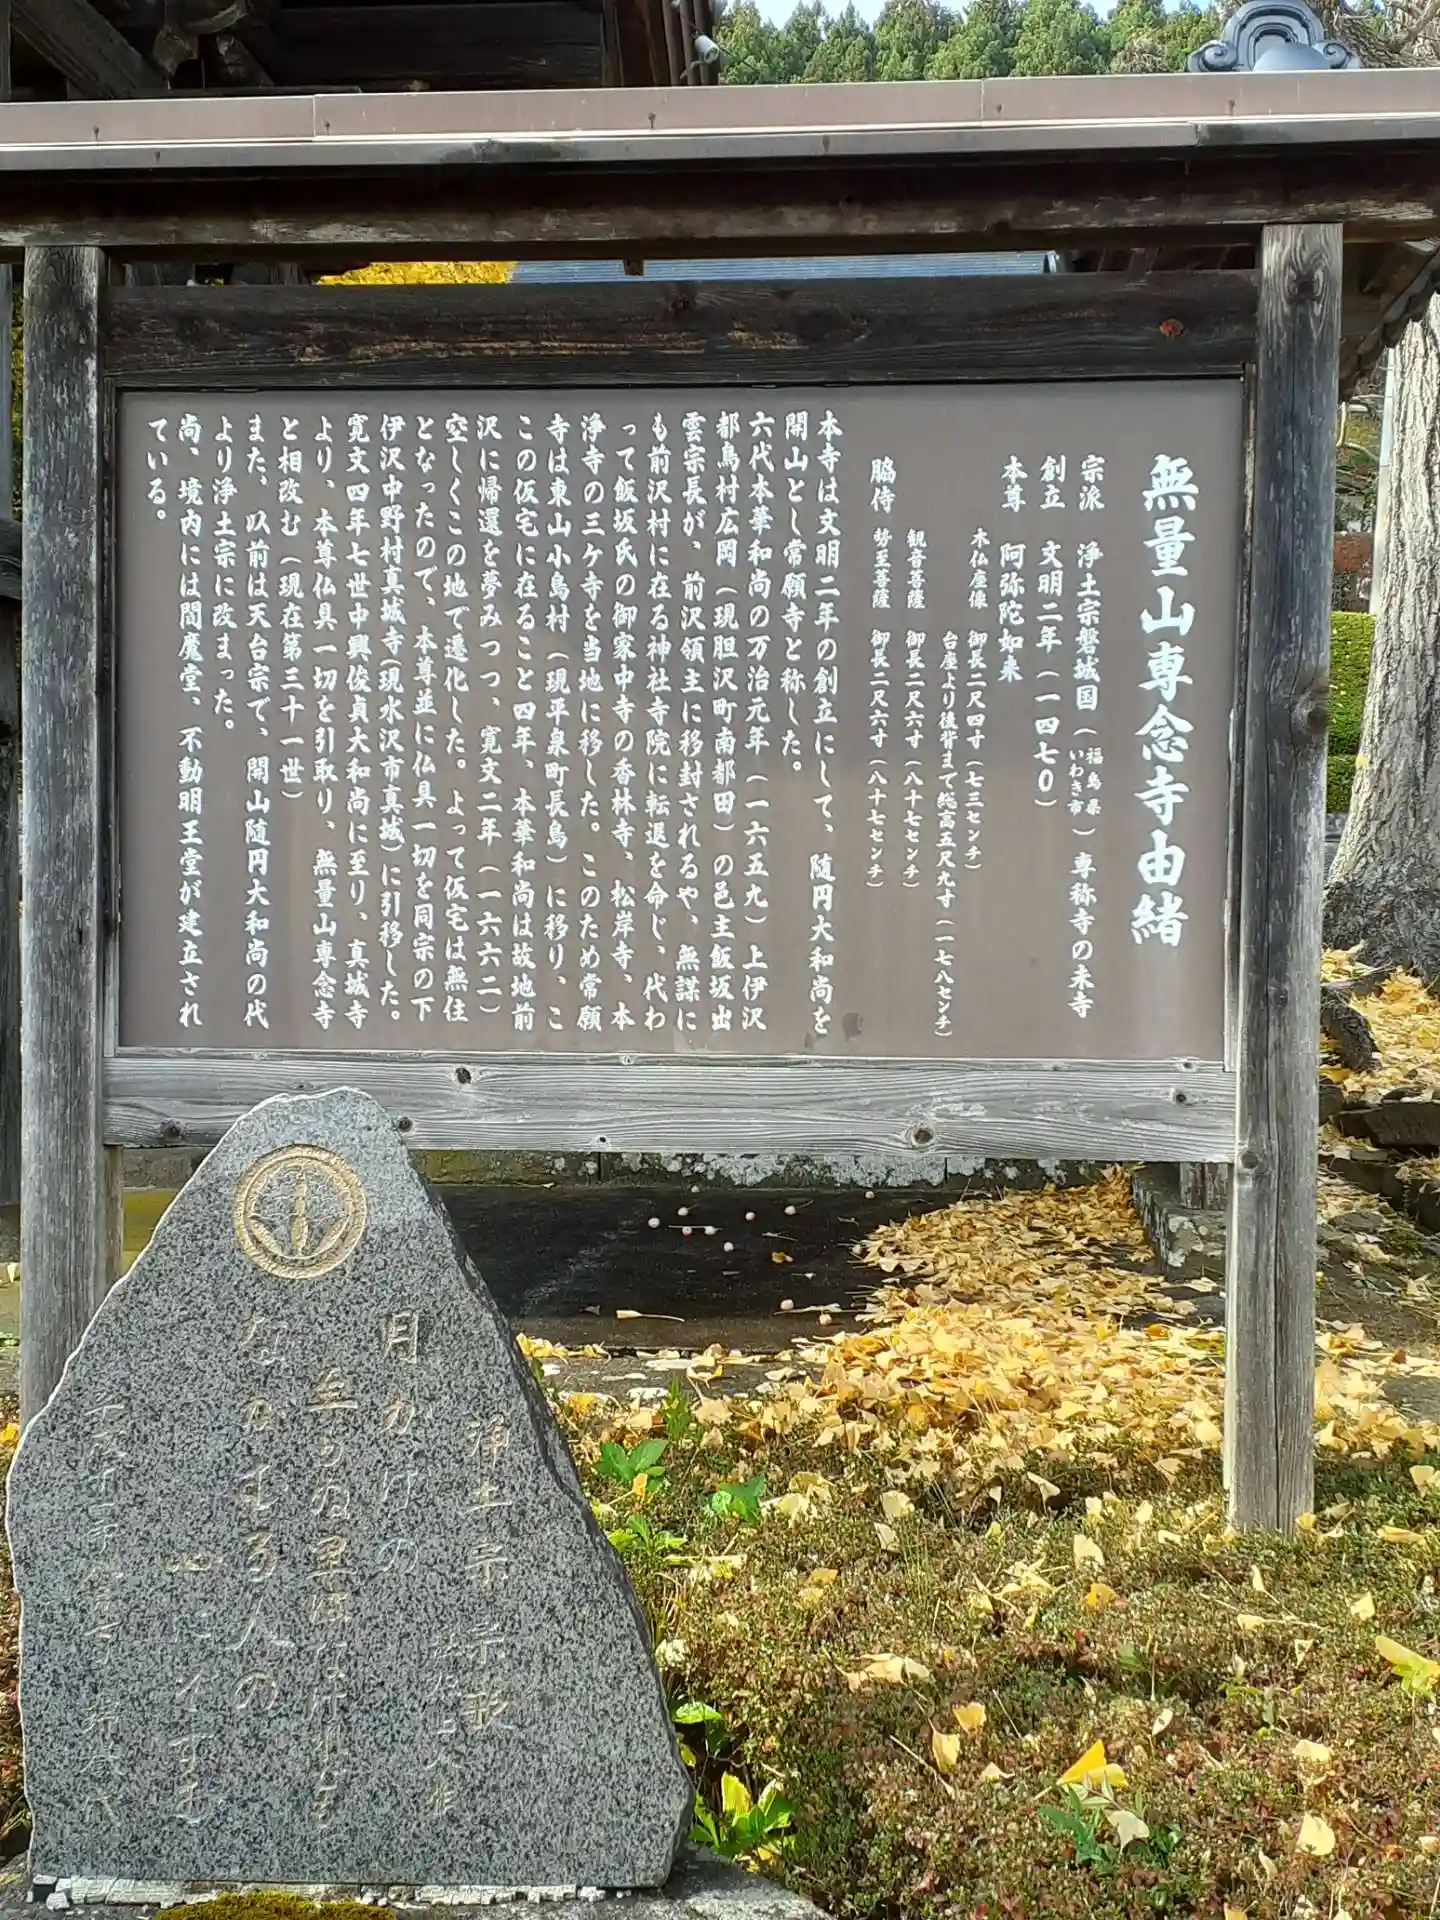 無量山専念寺由緒
宗派 浄土宗磐城国（福島県いわき市）専称寺の末寺
創立 文明二年（一四七〇）
本尊 阿弥陀如来
木仏座像 御長二尺四寸（七三センチ）
台座より後背まで総高五尺九寸（一七八センチ）
観音菩薩 御長二尺六寸（八十七センチ）
脇侍 勢至菩薩 御長二尺六寸（八十七センチ）
本寺は文明二年の創立にして、随円大和尚を
開山とし常願寺と称した。
六代本華和尚の万治元年（一六五九）上伊沢
都鳥村広岡（現胆沢町南都田）の邑主飯坂出
雲宗長が、前沢領主に移封されるや、無謀に
も前沢村に在る神社寺院に転退を命じ、代わ
って飯坂氏の御家中寺の香林寺、松岸寺、本
浄寺の三ケ寺を当地に移した。このため常願
寺は東山小島村（現平泉町長島）に移り、こ
この仮宅に在ること四年、本華和尚は故地前
沢に帰還を夢みつつ、寛文二年（一六六二）
空しくこの地で遷化した。よって仮宅は無住
となったので、本尊並に仏具一切を同宗の下
伊沢中野村真城寺(現水沢市真城)に引移した。
寛文四年七世中興俊貞大和尚に至り、真城寺
より、本尊仏具一切を引取り、無量山専念寺
と相改む（現在第三十一世）
また、以前は天台宗で、開山随円大和尚の代
より浄土宗に改まった。
尚、境内には閻魔堂、不動明王堂が建立され
ている。
浄土宗宗歌
月かげの
里はなけれども
ながむる人の
心にぞすむ